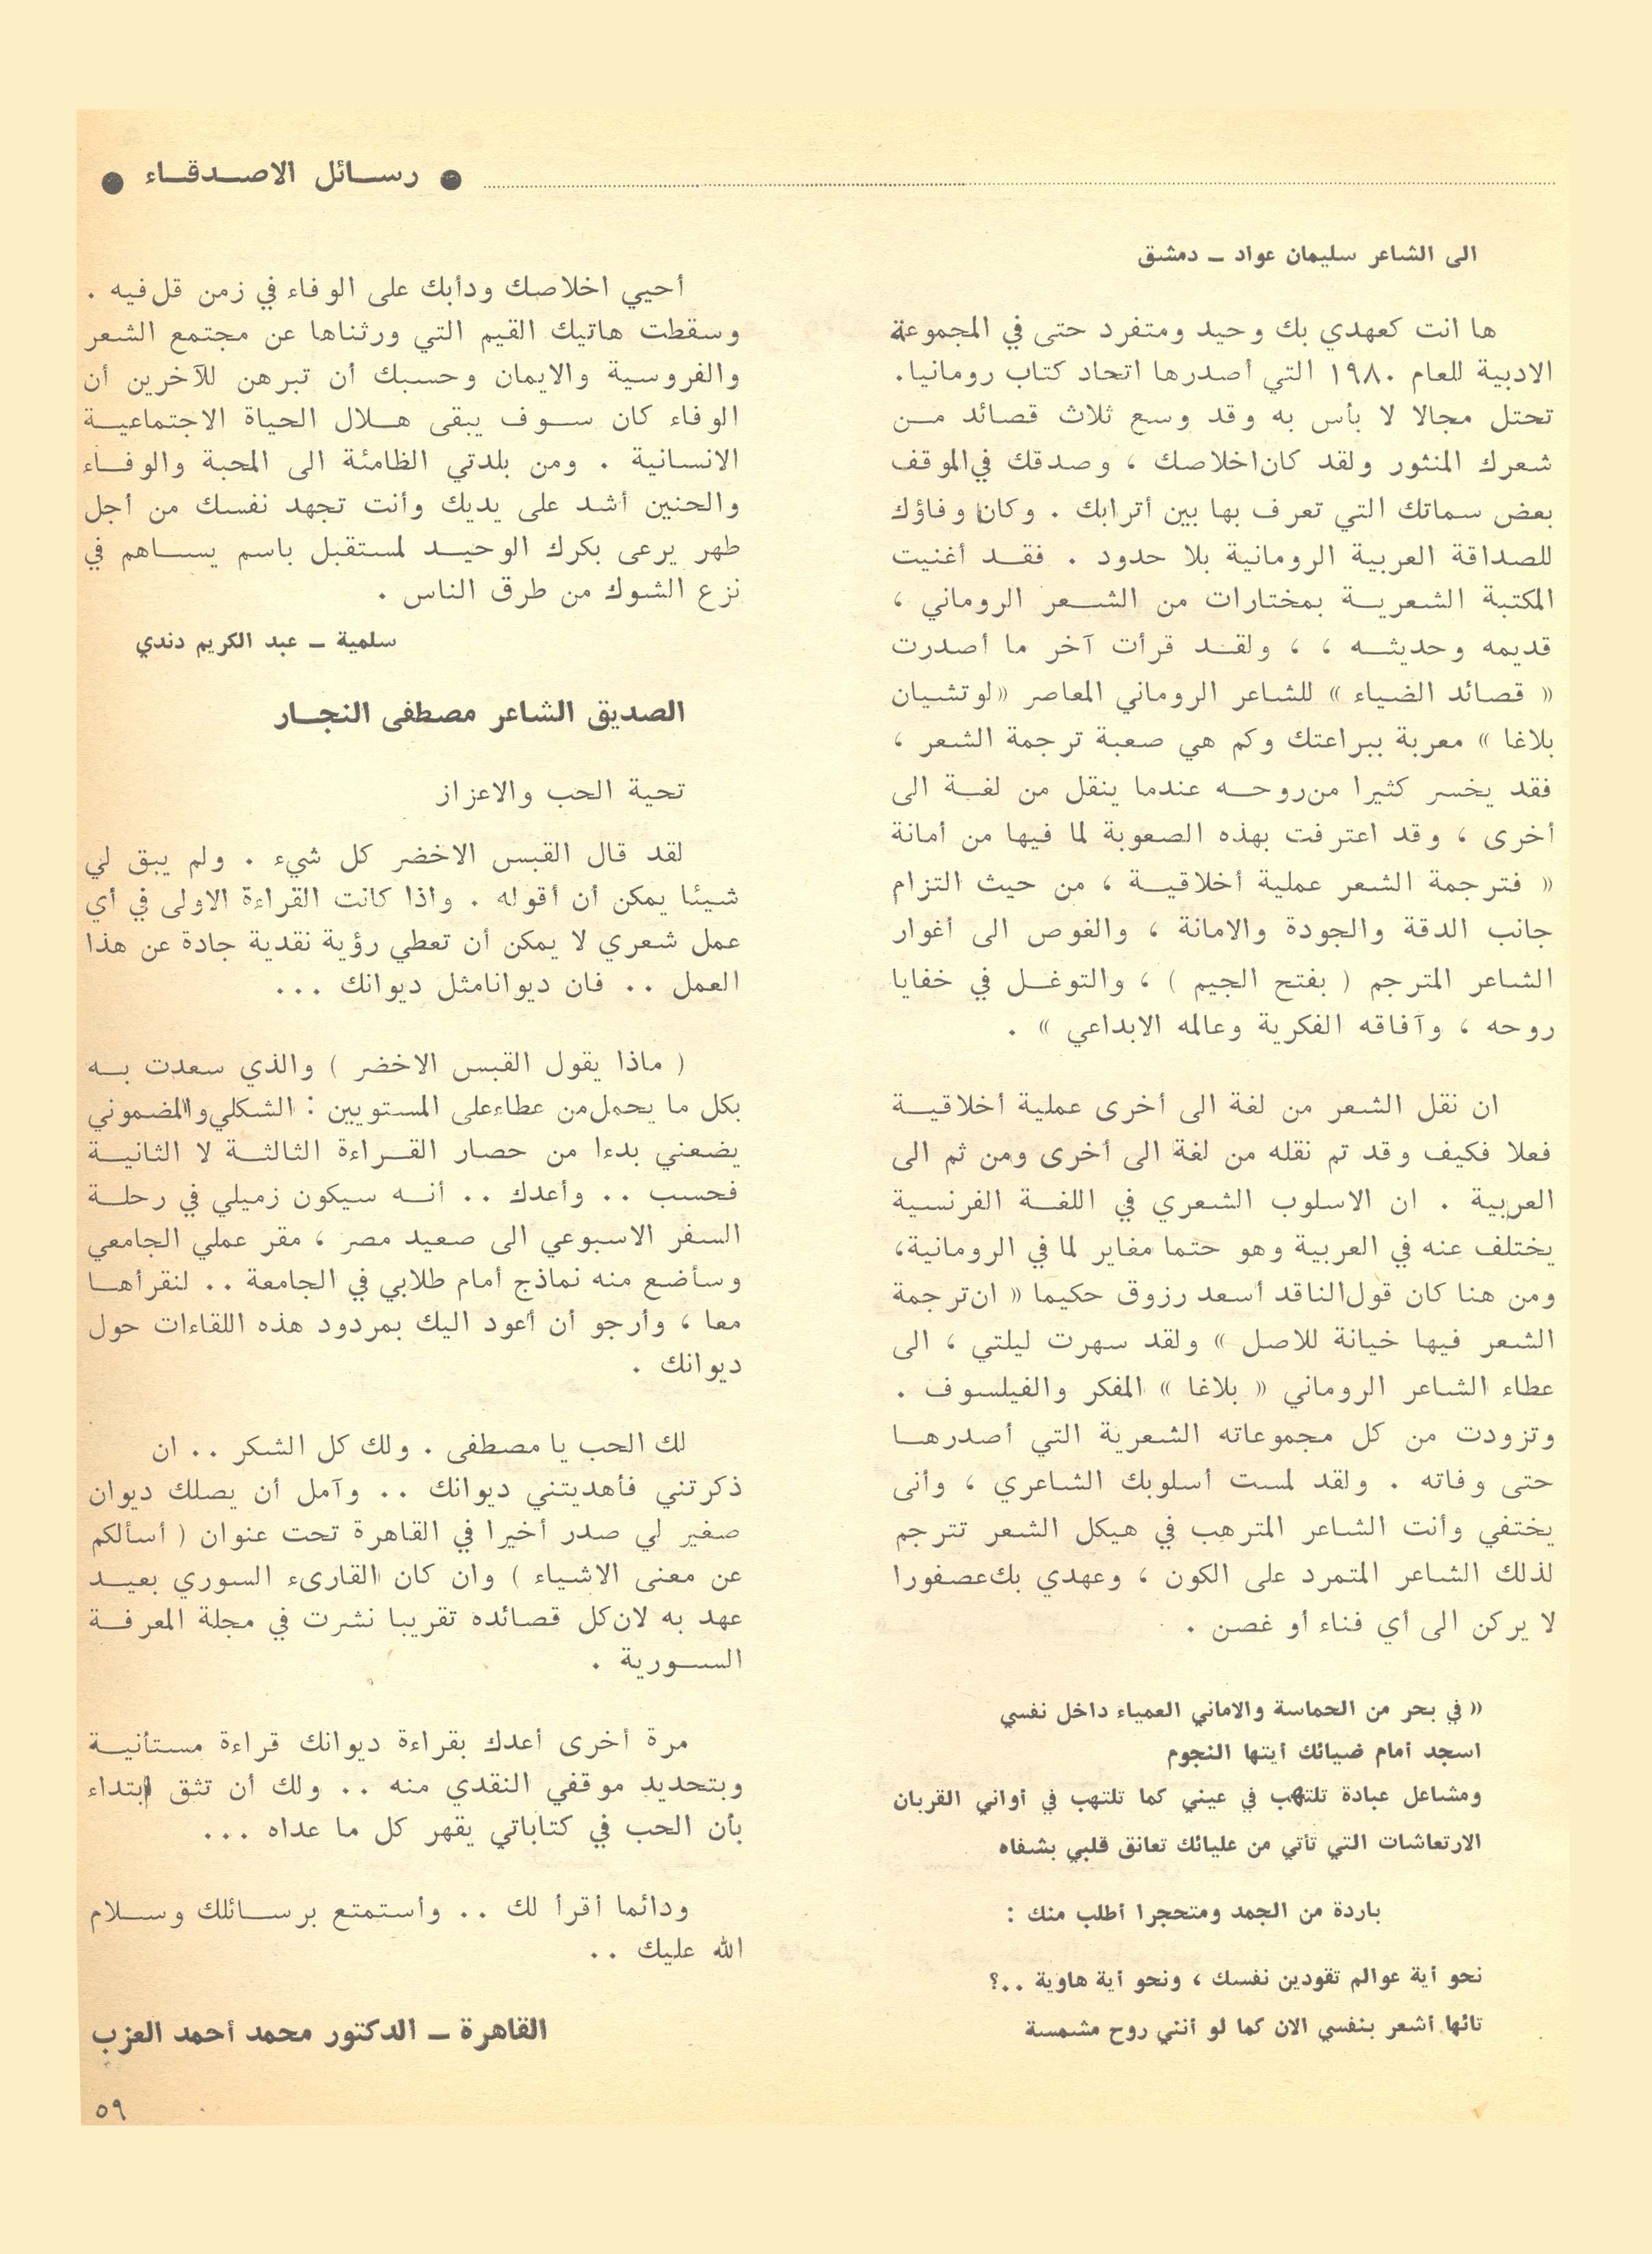 ● رسائل الاصدقاء ●
الى الشاعر سليمان عواد ـ دمشق
ها انت كعهدي بك وحيد ومتفرد حتى في المجموعة
الادبية للعام ١٩٨٠ التي أصدرها اتحاد كتاب رومانيا.
تحتل مجالا لا بأس به وقد وسع ثلاث قصائد من
شعرك المنثور ولقد كان اخلاصك ، وصدقك في الموقف
بعض سماتك التي تعرف بها بين أترابك . وكان وفاؤك
للصداقة العربية الرومانية بلا حدود . فقد أغنيت
المكتبة الشعرية بمختارات من الشعر الروماني ،
قديمه وحديثه ، ، ولقد قرأت آخر ما أصدرت
« قصائد الضياء » للشاعر الروماني المعاصر «لوتشيان
بلاغا » معربة ببراعتك وكم هي صعبة ترجمة الشعر ،
فقد يخسر كثيرا من روحه عندما ينقل من لغة الى
أخرى ، وقد اعترفت بهذه الصعوبة لما فيها من أمانة
« فترجمة الشعر عملية أخلاقية ، من حيث التزام
جانب الدقة والجودة والامانة ، والغوص الى أغوار
الشاعر المترجم ( بفتح الجيم ) ، والتوغل في خفايا
روحه ، وآفاقه الفكرية وعالمه الابداعي » .
ان نقل الشعر من لغة الى أخرى عملية أخلاقية
فعلا فكيف وقد تم نقله من لغة الى أخرى ومن ثم الى
العربية . ان الاسلوب الشعري في اللغة الفرنسية
يختلف عنه في العربية وهو حتما مغاير لما في الرومانية،
ومن هنا كان قول الناقد أسعد رزوق حكيما « ان ترجمة
الشعر فيها خيانة للاصل » ولقد سهرت ليلتي ، الى
عطاء الشاعر الروماني « بلاغا » المفكر والفيلسوف .
وتزودت من كل مجموعاته الشعرية التي أصدرها
حتى وفاته . ولقد لمست أسلوبك الشاعري ، وأنى
يختفي وأنت الشاعر المترهب في هيكل الشعر تترجم
لذلك الشاعر المتمرد على الكون ، وعهدي بك عصفورا
لا يركن الى أي فناء أو غصن .
« في بحر من الحماسة والاماني العمياء داخل نفسي
اسجد أمام ضيائك أيتها النجوم
ومشاعل عبادة تلتهب في عيني كما تلتهب في أواني القربان
الارتعاشات التي تأتي من عليائك تعانق قلبي بشفاه
باردة من الجمد ومتحجرا أطلب منك :
نحو أية عوالم تقودين نفسك ، ونحو أية هاوية ..؟
تائها أشعر بنفسي الان كما لو أنني روح مشمسة
أحيي اخلاصك ودأبك على الوفاء في زمن قل فيه .
وسقطت هاتيك القيم التي ورثناها عن مجتمع الشعر
والفروسية والايمان وحسبك أن تبرهن للآخرين أن
الوفاء كان سوف يبقى هلال الحياة الاجتماعية
الانسانية . ومن بلدتي الظامئة الى المحبة والوفاء
والحنين أشد على يديك وأنت تجهد نفسك من أجل
طهر يرعى بكرك الوحيد لمستقبل باسم يساهم في
نزع الشوك من طرق الناس .
سلمية ـ عبد الكريم دندي
الصديق الشاعر مصطفى النجار
تحية الحب والاعزاز
لقد قال القبس الاخضر كل شيء . ولم يبق لي
شيئا يمكن أن أقوله . واذا كانت القراءة الاولى في أي
عمل شعري لا يمكن أن تعطي رؤية نقدية جادة عن هذا
العمل .. فان ديوانا مثل ديوانك ...
( ماذا يقول القبس الاخضر ) والذي سعدت به
بكل ما يحمل من عطاء على المستويين : الشكلي والمضموني
يضعني بدءا من حصار القراءة الثالثة لا الثانية
فحسب .. وأعدك .. أنه سيكون زميلي في رحلة
السفر الاسبوعي الى صعيد مصر ، مقر عملي الجامعي
وسأضع منه نماذج أمام طلابي في الجامعة .. لنقرأها
معا ، وأرجو أن أعود اليك بمردود هذه اللقاءات حول
ديوانك .
لك الحب يا مصطفى . ولك كل الشكر .. ان
ذكرتني فأهديتني ديوانك .. وآمل أن يصلك ديوان
صغير لي صدر أخيرا في القاهرة تحت عنوان ( أسألكم
عن معنى الاشياء ) وان كان القارىء السوري بعيد
عهد به لان كل قصائده تقريبا نشرت في مجلة المعرفة
السورية .
مرة أخرى أعدك بقراءة ديوانك قراءة مستأنية
وبتحديد موقفي النقدي منه .. ولك أن تثق ابتداء
بأن الحب في كتاباتي يقهر كل ما عداه ...
ودائما أقرأ لك .. وأستمتع برسائلك وسلام
الله عليك ..
القاهرة ـ الدكتور محمد أحمد العزب
٥٩